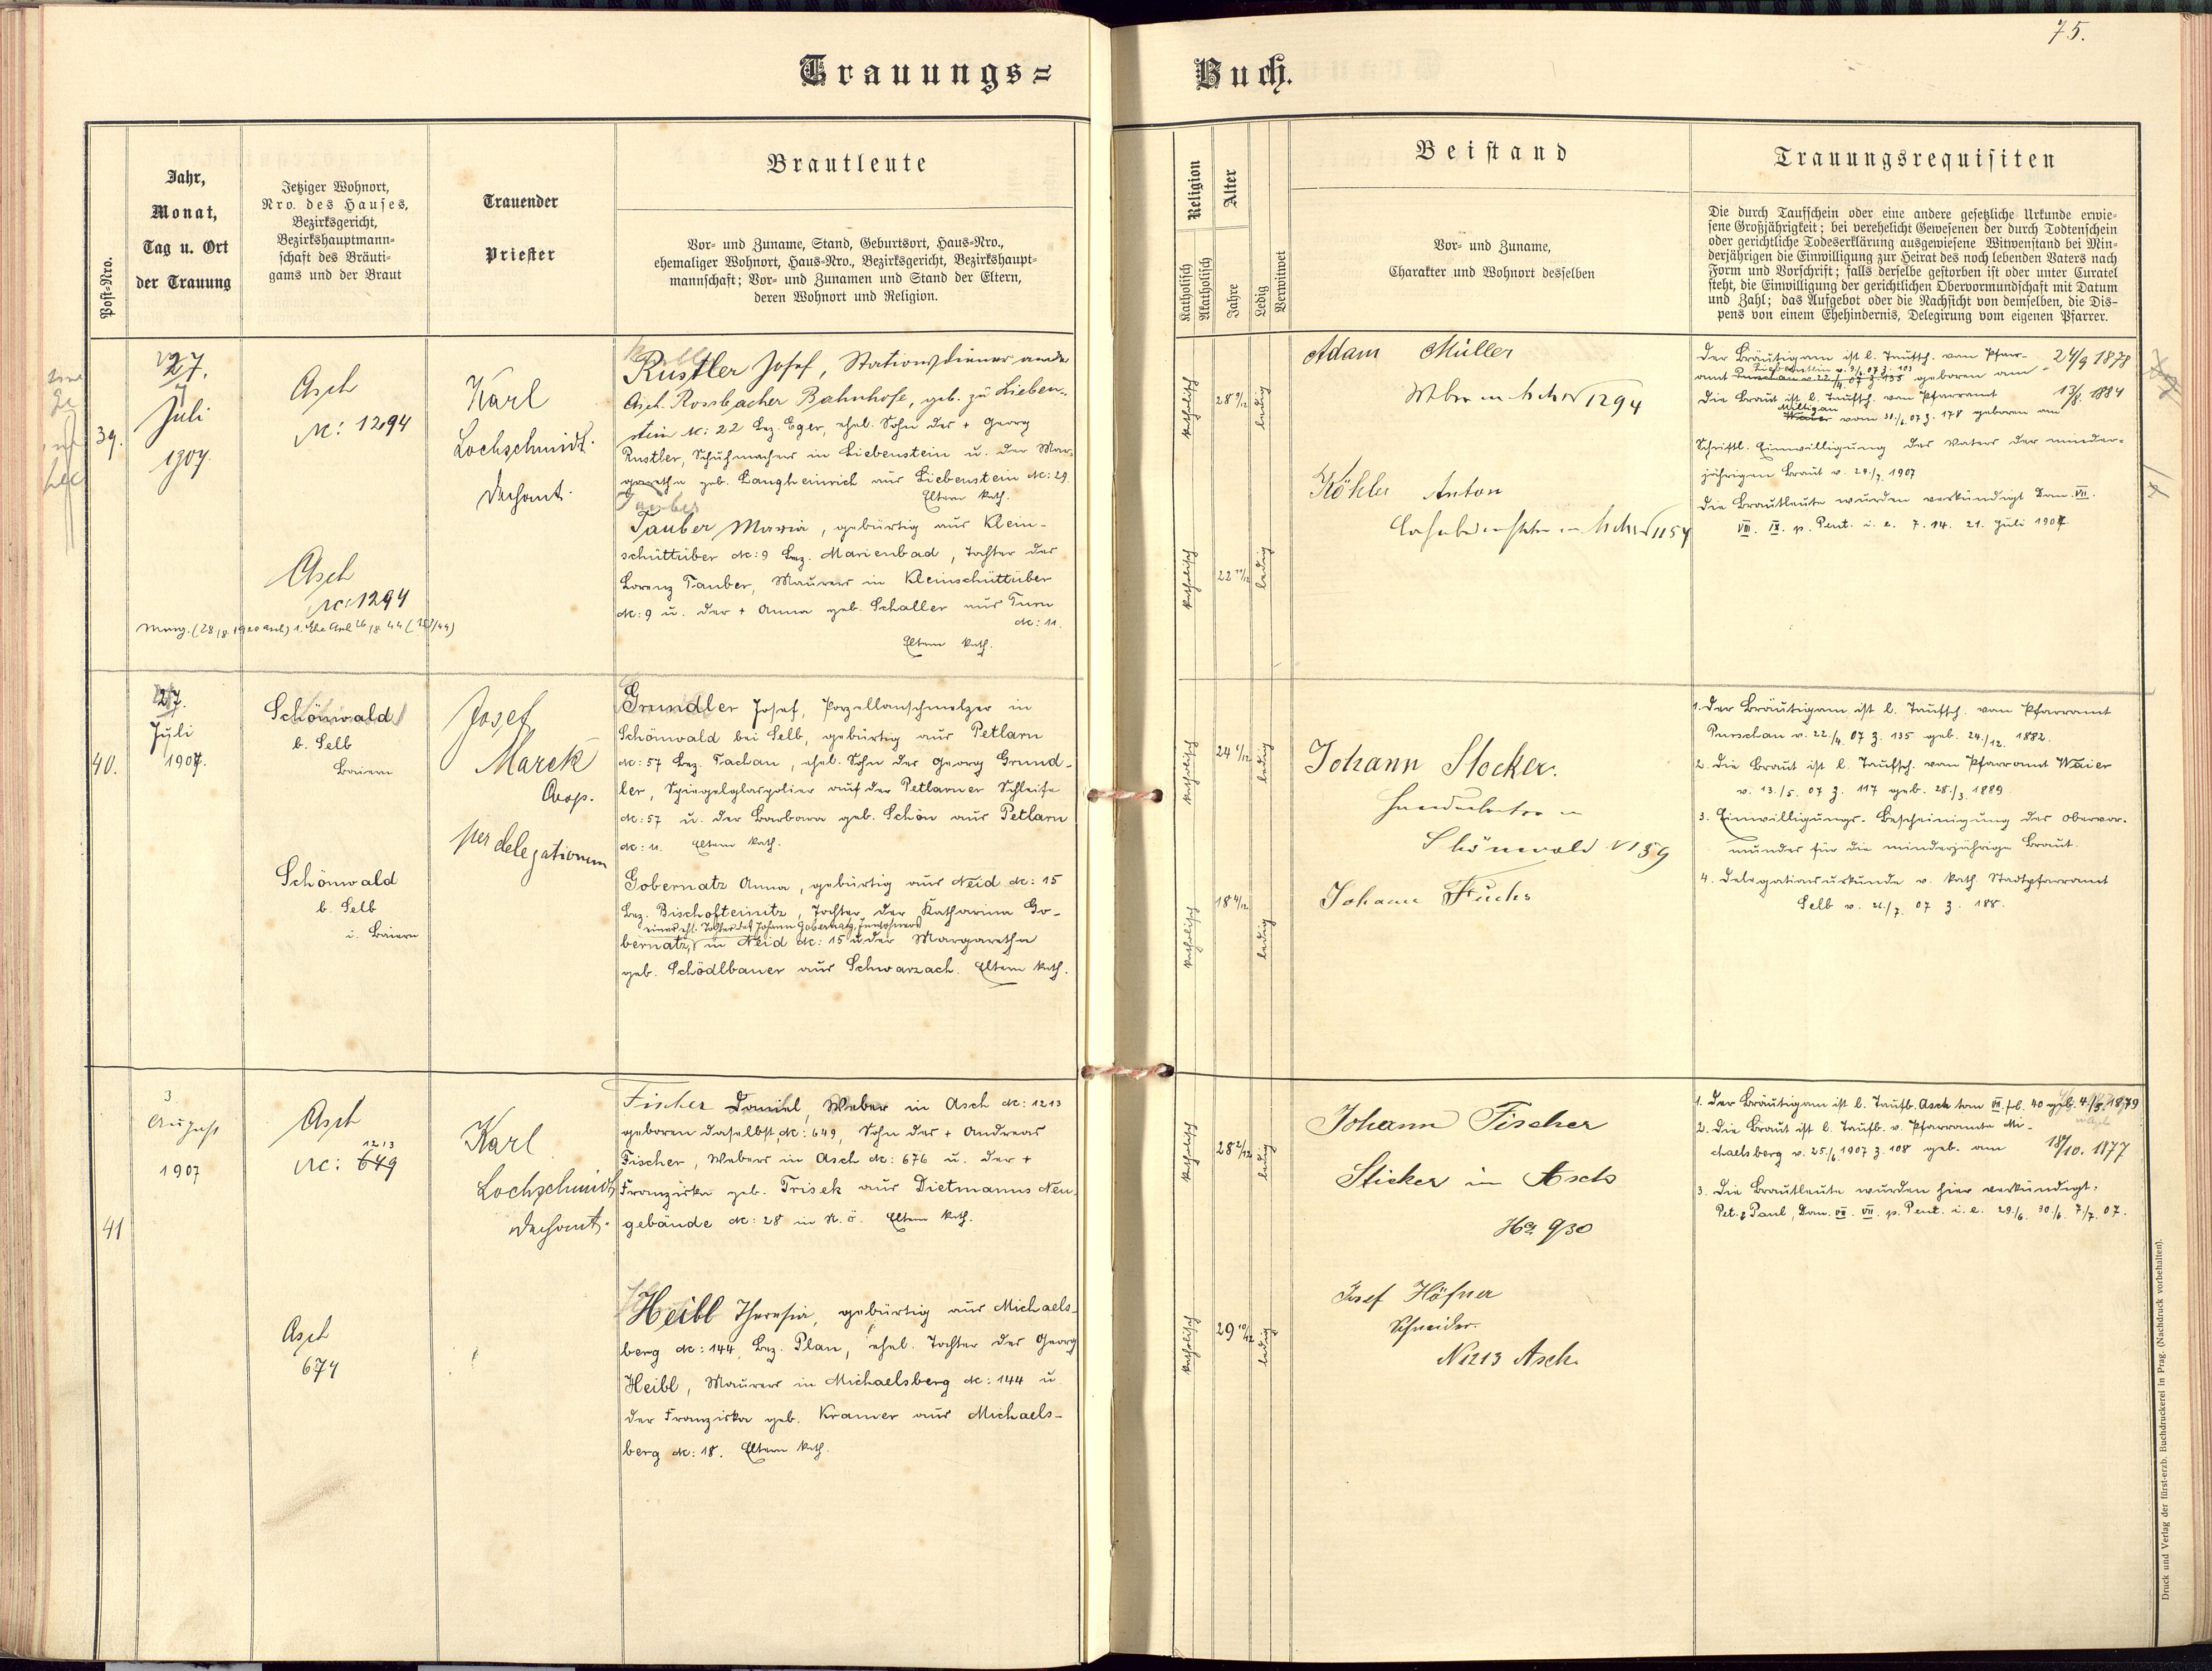 75.
Trauungs=
Buch.
Post=Nro.
Jahr,
Monat,
Tag u. Ort
der Trauung
Jetziger Wohnort,
Nro. des Hauses,
Bezirksgericht,
Bezirkshauptmann=
schaft des Bräuti=
gams und der Braut
Trauender
Priester
Brautleute
Vor= und Zuname, Stand, Geburtsort, Haus=Nro.,
ehemaliger Wohnort, Haus=Nro., Bezirksgericht, Bezirkshaupt=
mannschaft; Vor= und Zunamen und Stand der Eltern,
deren Wohnort und Religion.
Religion
Katholisch
Akatholisch
Alter
Jahre
Ledig
Verwitwet
Beistand
Vor= und Zuname,
Charakter und Wohnort desselben
Trauungsrequisiten
Die durch Taufschein oder eine andere gesetzliche Urkunde erwie=
sene Großjährigkeit; bei verehelicht Gewesenen der durch Todtenschein
oder gerichtliche Todeserklärung ausgewiesene Witwenstand bei Min=
derjährigen die Einwilligung zur Heirat des noch lebenden Vaters nach
Form und Vorschrift; falls derselbe gestorben ist oder unter Curatel
steht, die Einwilligung der gerichtlichen Obervormundschaft mit Datum
und Zahl; das Aufgebot oder die Nachsicht von demselben, die Dis=
pens von einem Ehehindernis, Delegirung vom eigenen Pfarrer.
39.
27.
Juli
1907.
Asch
Nc: 1294
Asch
Nc: 1294
Karl
Lochschmidt
Dechant.
Rustler Josef, Stationsdiener am
Asch-Rossbacher Bahnhofe, geb. zu Lieben-
stein Nc: 22 Bez. Eger, ehel. Sohn des + Georg
Rustler, Schuhmachers in Liebenstein u. der Mar-
garetha geb. Langheinrich aus Liebenstein Nc: 29.
Eltern kath.
Tauber
Tauber Maria, gebürtig aus Klein-
schüttüber Nc: 9 Bez. Marienbad, Tochter des
Lorenz Tauber, Maurers in Kleinschüttüber
Nc: 9 u. der + Anna geb. Schaller aus Turn
Nc: 11.
Eltern kath.
katholisch
28 9/12
ledig
katholisch
22 11/12
ledig
Adam Müller
1294
Köhler Anton
1154
Der Bräutigam ist l. Taufsch. vom Pfarr-
amt geboren am 24/9 1878
Die Braut ist l. Taufsch. vom Pfarramt 13/8. 1884
vom 30./6. 07 Z. 178 geboren am
Schriftl. Einwilligung des Vaters der minder-
jährigen Braut v. 24./7. 1907
Die Brautleute wurden verkündigt Dom. VII.
VIII. IX. p. Pent. i. e. 7. 14. 21. Juli 1907
40.
27.
Juli
1907.
Schönwald
b. Selb
Baiern
Schönwald
b. Selb
i. Baiern
Josef
Marek
Coop.
per delegationem
Grundler Josef, Porzellanschmelzer in
Schönwald bei Selb, gebürtig aus Petlarn
Nc: 57 Bez. Tachau, ehel. Sohn des Georg Grund-
ler, Spiegelglaspolier auf der Petlarner Schleife
Nc: 57 u. der Barbara geb. Schön aus Petlarn
Nc: 11. Eltern kath.
Gobernatz Anna, gebürtig aus Neid Nc: 15
Bez. Bischofteinitz, Tochter der Katharina Go-
einer ehl. Tochter des Johann Gobernatz, Inwohners
bernatz, in Neid Nc: 15 u der Margaretha
geb. Schödlbauer aus Schwarzach. Eltern kath.
katholisch
24 6/12
ledig
katholisch
18 4/12
ledig
Johann Stocker.
Schönwald N 159
Johann Fuchs
1. Der Bräutigam ist l. Taufsch. vom Pfarramt
Purschau v. 22./4. 07 Z. 135 geb. 24./12. 1882.
2. Die Braut ist l. Taufsch. vom Pfarramt Waier
v. 13./5. 07 Z. 117 geb. 28./3. 1889.
3. Einwilligungs-Bescheinigung des Obervor-
mundes für die minderjährige Braut.
4. Delegationsurkunde v. kath. Stadtpfarramt
Selb v. 21./7. 07 Z. 188.
41
3
August
1907
Asch
1213
Nc: 649
Asch
674
Karl
Lochschmidt
Dechant.
Fischer Daniel, Weber in Asch Nc: 1213
geboren daselbst, Nc: 649, Sohn des + Andreas
Fischer, Webers in Asch Nc: 676 u. der +
Franziska geb. Trisek aus Dietmanns Neu-
gebäude Nc: 28 in N. Ö. Eltern kath.
Heibl Theresia, gebürtig aus Michaels-
berg Nc: 144, Bez. Plan, ehel. Tochter des Georg
Heibl, Maurers in Michaelsberg Nc: 144 u.
der Franziska geb. Kramer aus Michaels-
berg Nc: 18. Eltern kath.
katholisch
28 2/12
ledig
katholisch
29 10/12
ledig
Johann Fischer
Sticker in Asch
930
Josef Höfner
Schneider.
N 1213 Asch.
1. Der Bräutigam ist l. Taufb. Asch tom VI. fol. 40 geb. 4./5. 1879
2. Die Braut ist l. Taufb. v. Pfarramte Mi-
chaelsberg v. 25./6. 1907 Z. 108 geb. am 18/10. 1877
3. Die Brautleute wurden hier verkündigt:
Pet. & Paul, Dom. VI. VII. p. Pent. i. e. 29./6. 30./6. 7./7. 07.
Druck und Verlag der fürst-erzb. Buchdruckerei in Prag. (Nachdruck vorbehalten).